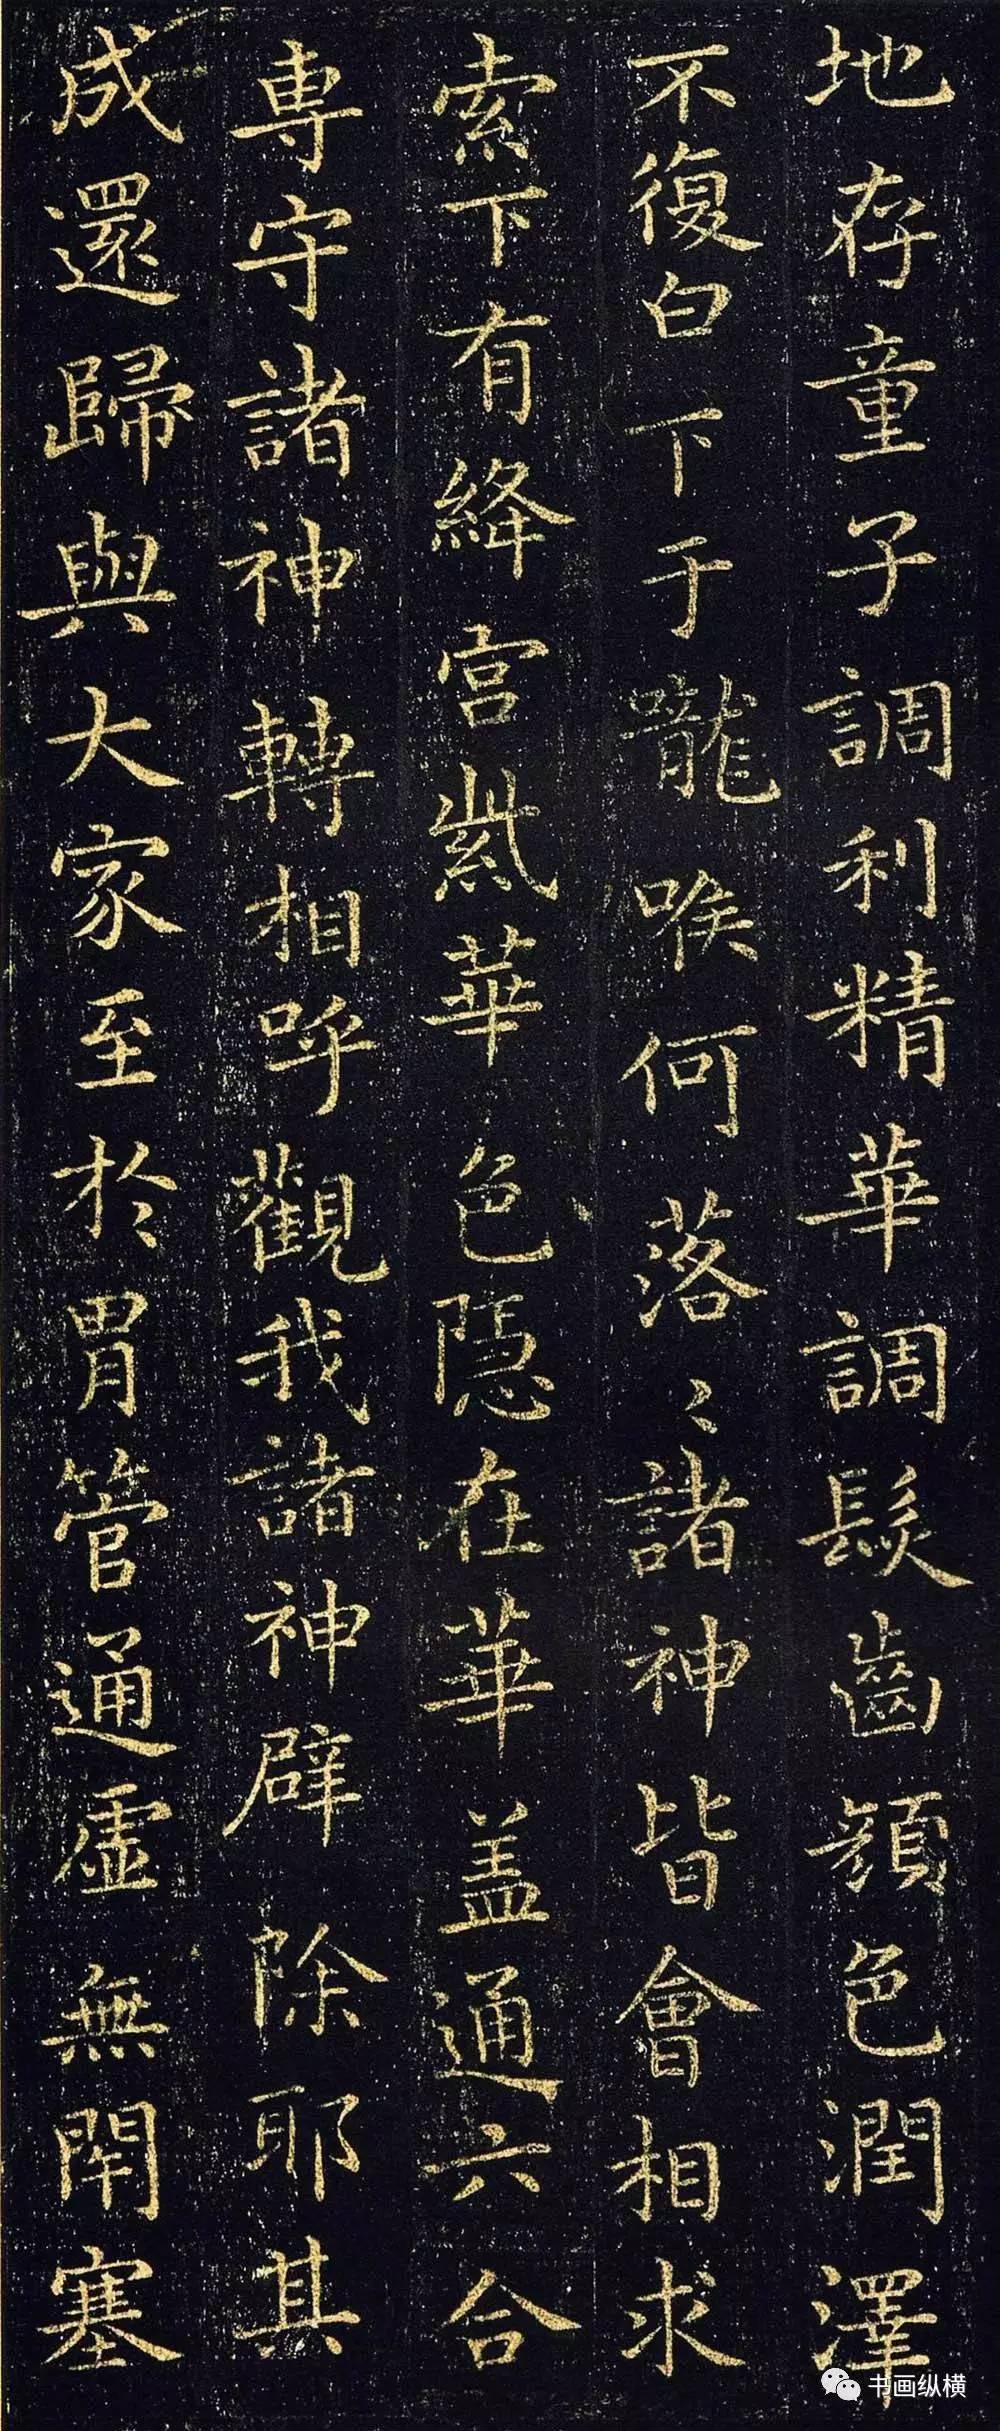 地存童子調利精華調髮齒顏色潤澤
不復白下于嚨喉何落〻諸神皆會相求
索下有絳宮紫華色隱在華盖通六合
專守諸神轉相呼觀我諸神辟除耶其
成還歸與大家至於胃管通虛無閉塞
书画纵横